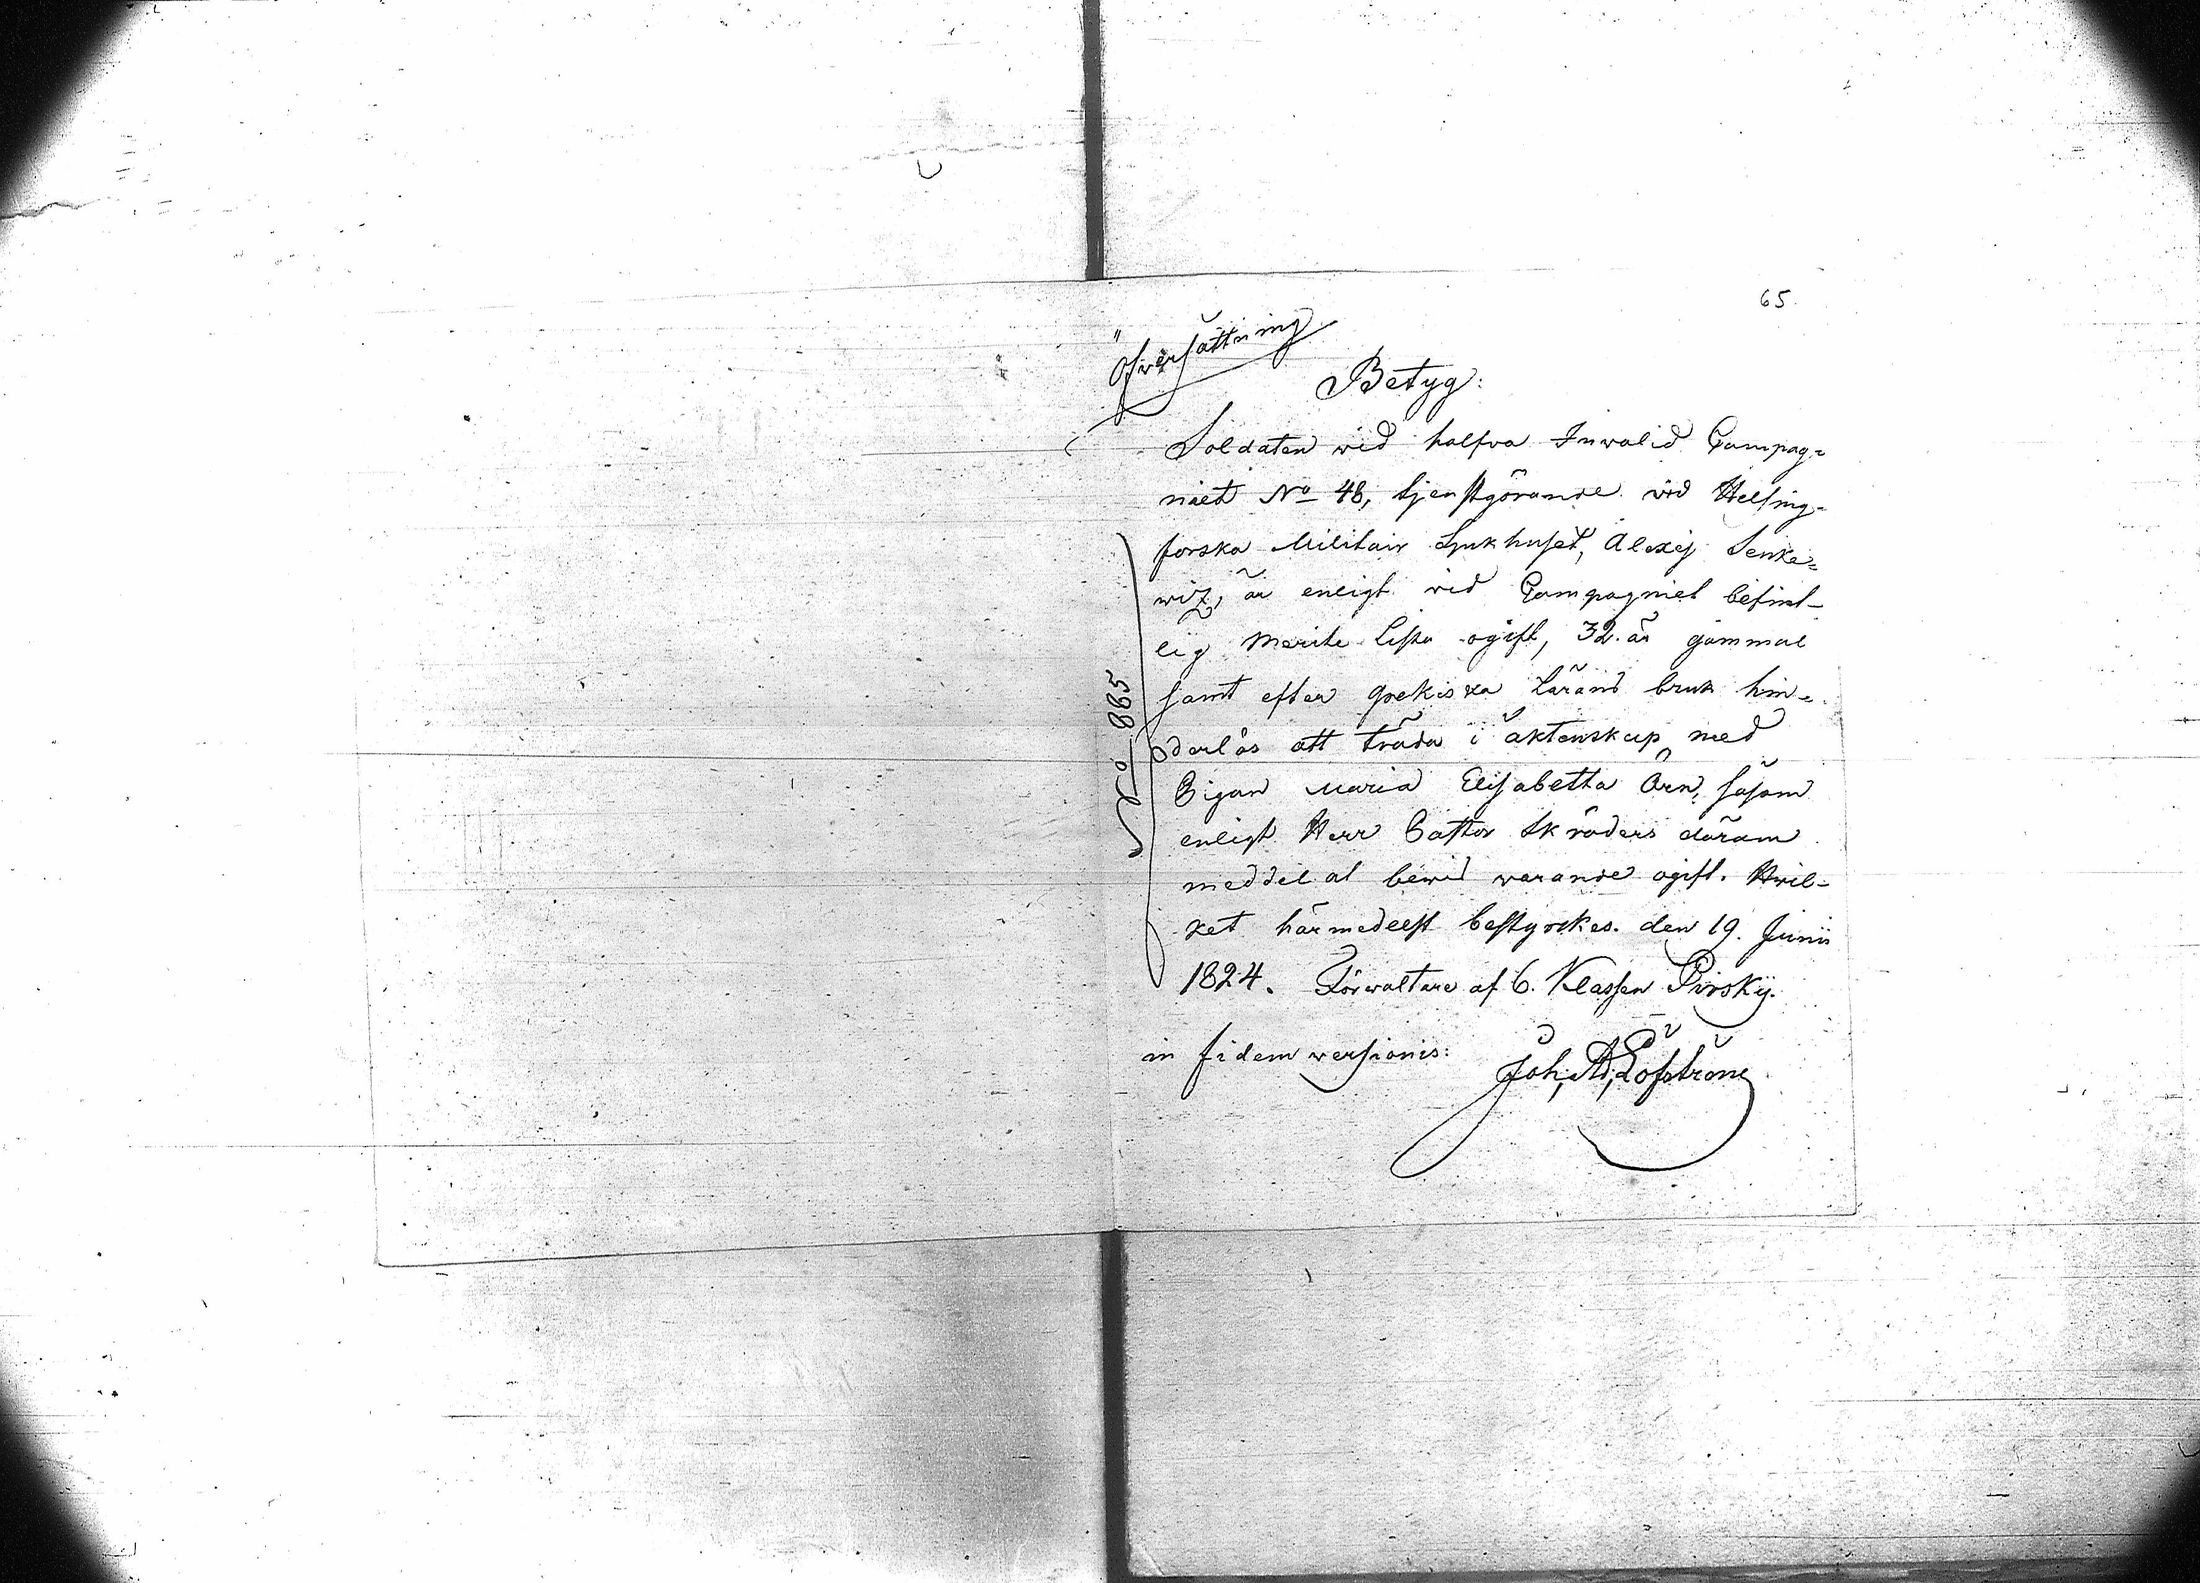 65.
Öfwersättning
Betyg:
Soldaten wid halfva Inwalid Compag=
niet No 48, tjenstgörande wid Helsing-
forska Militair Sjukhuset, Alexej Senke=
witz, är enligt wid Compagniet befint-
lig Merite Lista ogift, 32. år gammal
samt efter grekiska Lärans bruk hin=
derlös att träda i äktenskap med
Pigan Maria Elisabetha Örn, såsom
enligt Herr Pastor Skräders därom
meddelat bewis warande ogift. Hwil-
ket härmedelst bestyrckes. den 19. Junii
1824. Förwaltare af 6. Klassen Pirskÿ.
in fidem versionis:
Joh, Ad, Löfström
No 865